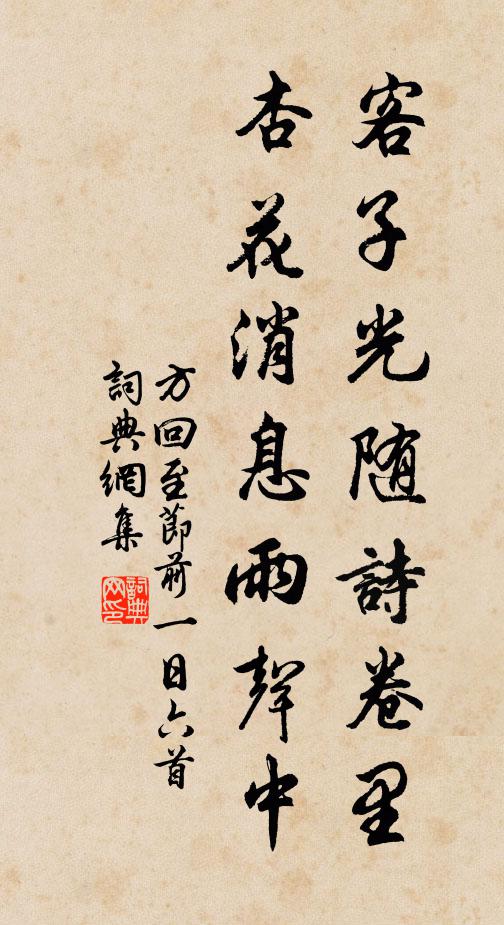 客子光随詩卷里
杏花消息雨聲中
方回至節前一日六首
詞典網集
詞典網印